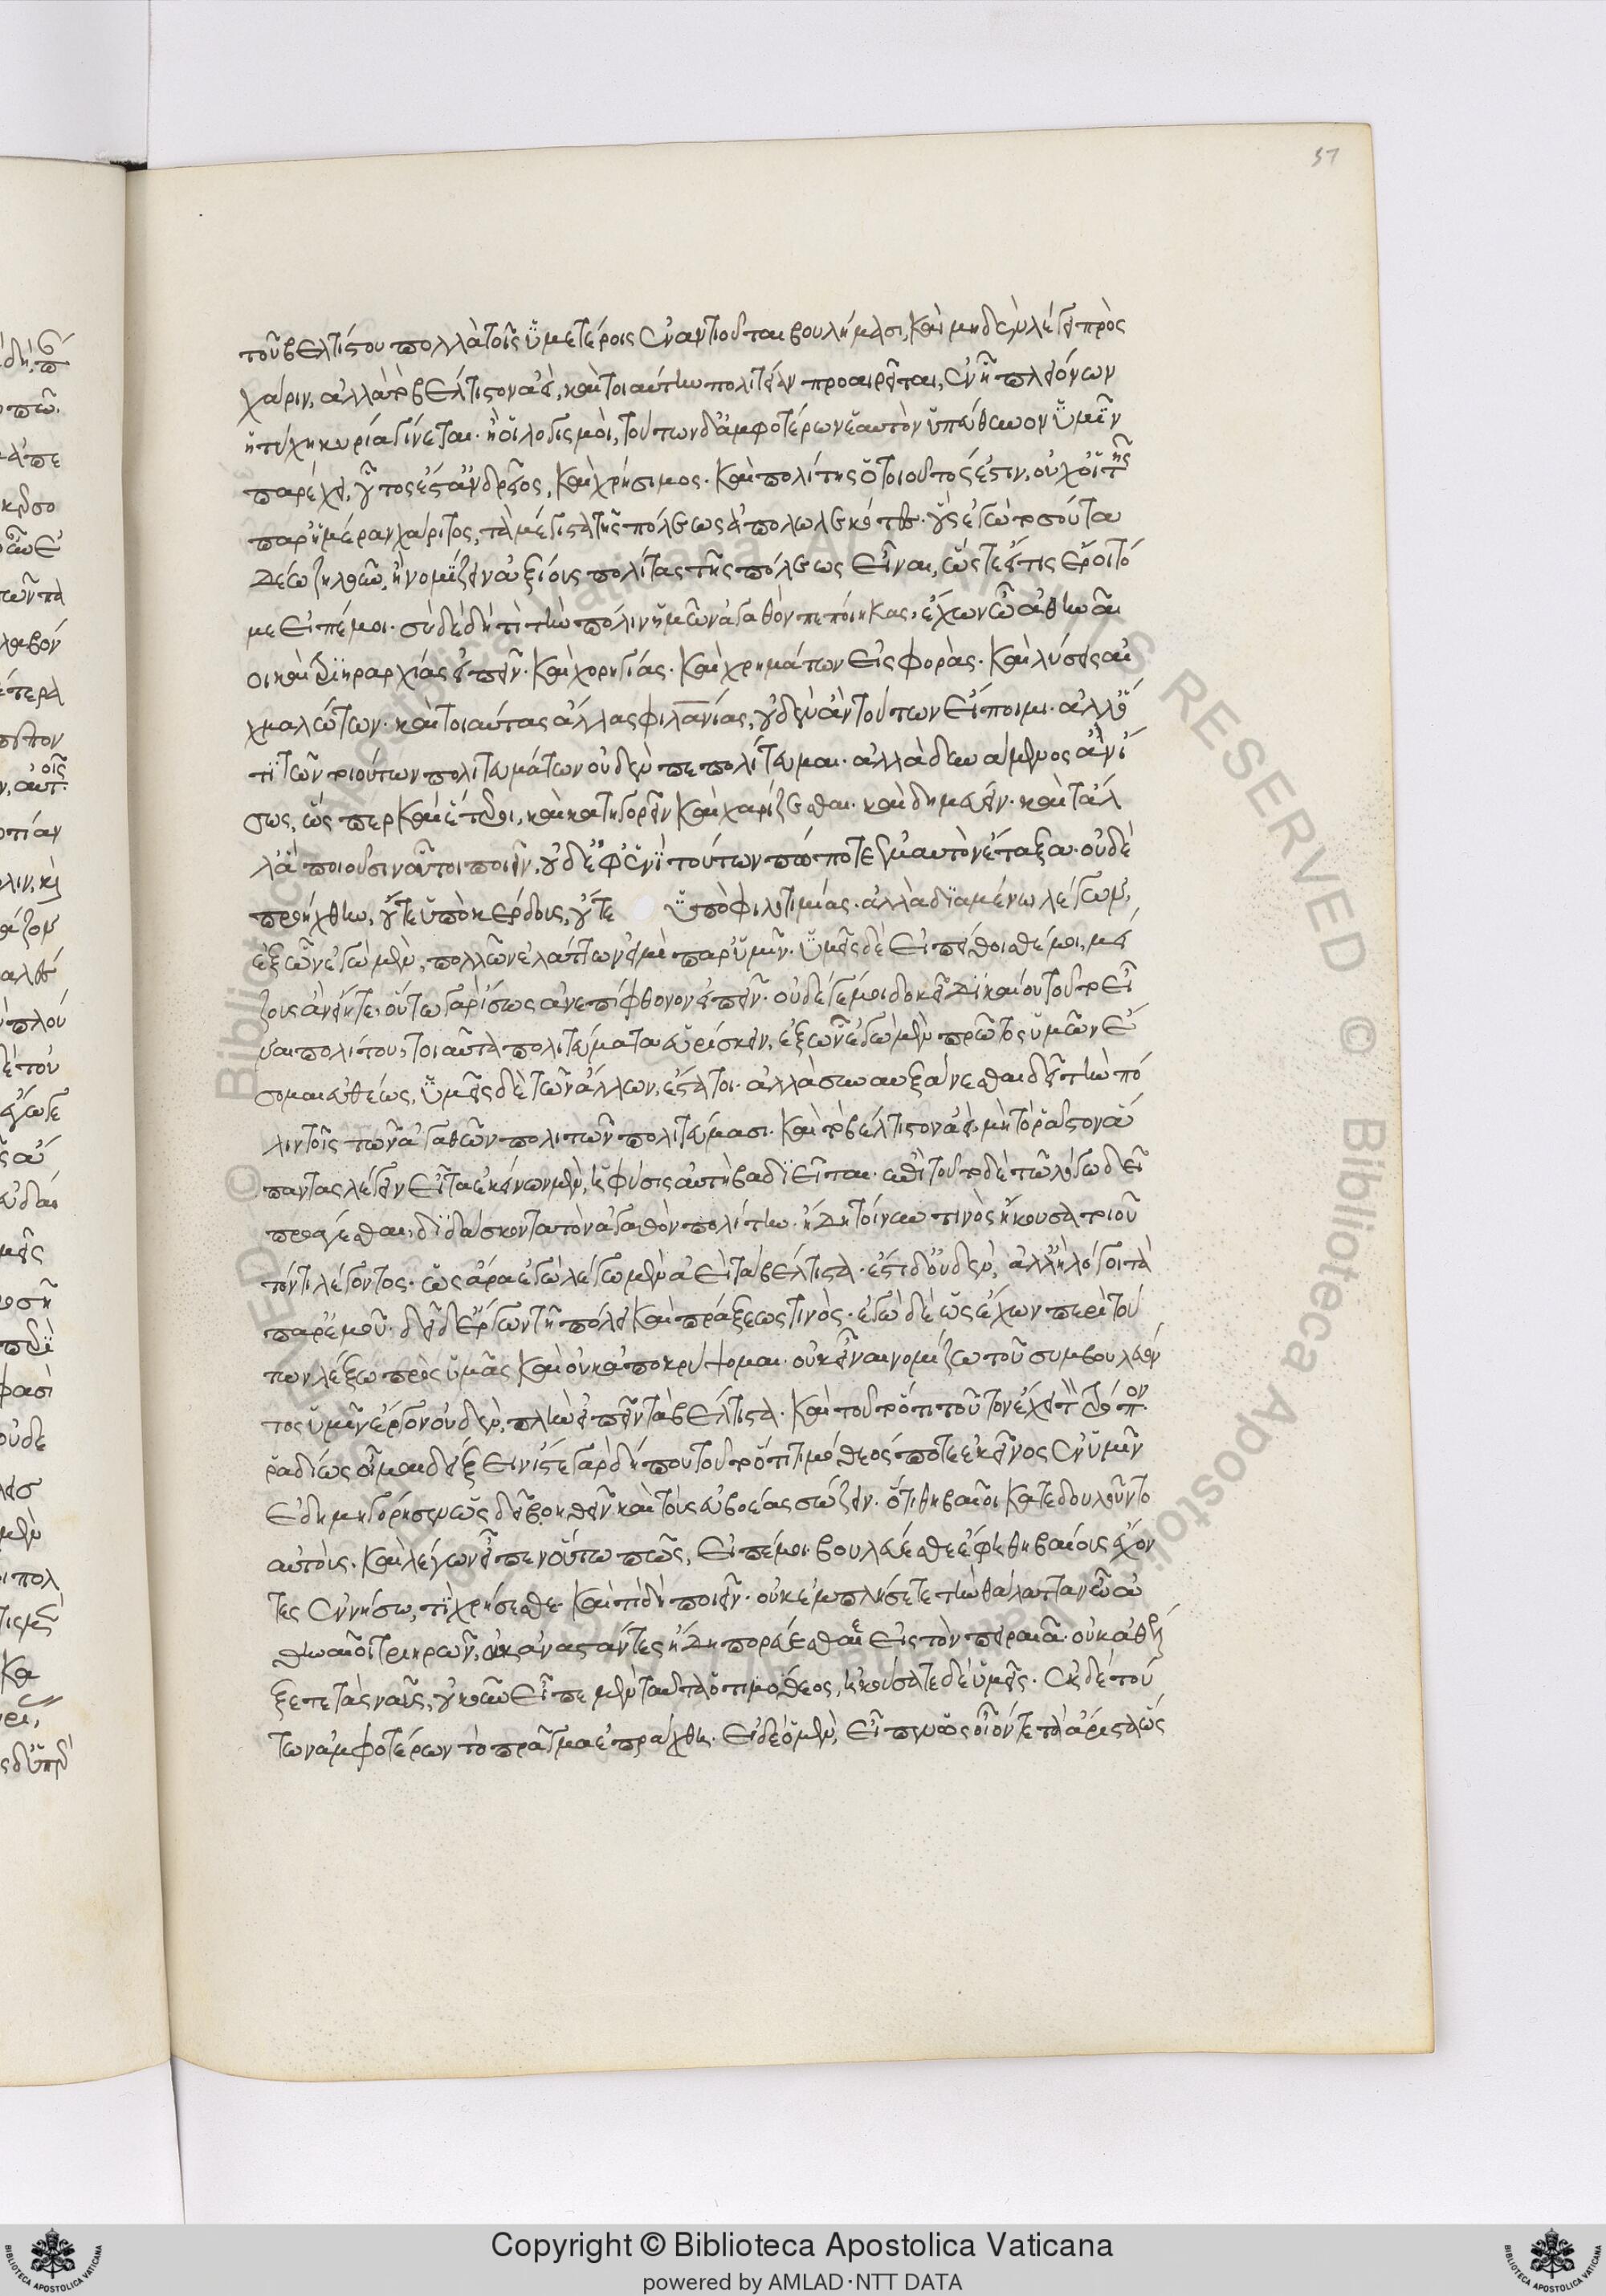 37
τοῦ βελτίστου πολλὰ τοῖς ὑμετέροις ἐναντιοῦται βουλήμασι, καὶ μηδὲν λέγει πρὸς
χάριν, ἀλλὰ τὸ βέλτιστον ἀεὶ, καὶ τοιαύτην πολιτείαν προαιρεῖται, ἐν ᾗ πλειόνων
ἡ τύχη κυρία γίνεται. ἢ οἱ λογισμοὶ, τούτων δ' ἀμφοτέρων ἑαυτὸν ὑπεύθυνον ὑμῖν
παρέχει, οὗτος ἐστ' ἀνδρεῖος, καὶ χρήσιμος. καὶ πολίτης ὁ τοιοῦτός ἐστιν, οὐχ οἱ τῆς
παρ' ἡμέραν χάριτος, τὰ μέγιστα τῆς πόλεως ἀπολωλεκότες. οὓς ἐγὼ τοσούτου
δέω ζηλοῦν, ἢ νομίζειν ἀξίους πολίτας τῆς πόλεως εἶναι, ὥστε εἴ τις ἔροιτό
με εἰπέ μοι. σὺ δὲ δὴ τί τὴν πόλιν ἡμῶν ἀγαθὸν πεποίηκας, ἔχων ὦ ἀθηναῖ
οι καὶ τριηραρχίας εἰπεῖν. καὶ χορηγίας. καὶ χρημάτων εἰσφοράς. καὶ λύσεις αἰ
χμαλώτων. καὶ τοιαύτας ἄλλας φιλανίας, οὐδὲν ἂν τούτων εἴποιμι. ἀλλ' ὅ
τι τῶν τοιούτων πολιτευμάτων οὐδὲν πεπολίτευμαι. ἀλλὰ δυνάμενος ἂν ἴ
σως, ὥσπερ καὶ ἕτεροι, καὶ κατηγορεῖν καὶ χαρίζεσθαι. καὶ δημεύειν. καὶ τἄλ
λα ἃ ποιοῦσιν οὗτοι ποιεῖν, οὐδ' ἐφ' ἑνὶ τούτων πώποτε ἐμαυτὸν ἔταξα. οὐδὲ
προήχθην, οὔτε ὑπὸ κέρδους, οὔτε ὑπὸ φιλοτιμίας. ἀλλὰ διαμένω λέγων,
ἐξ ὧν ἐγὼ μὲν, πολλῶν ἐλάττων εἰμὶ παρ' ὑμῖν. ὑμεῖς δὲ εἰ πείθοισθέ μοι, μεί
ζους ἂν εἴητε, οὕτω γὰρ ἴσως ἀνεπίφθονον εἰπεῖν. οὐδέ γέ μοι δοκεῖ δικαίου τοῦτο εἶ
ναι πολίτου, τοιαῦτα πολιτεύματα εὑρίσκειν, ἐξ ὧν ἐγὼ μὲν πρῶτος ὑμῶν ἔ
σομαι εὐθέως, ὑμεῖς δὲ τῶν ἄλλων, ἔστατοι. ἀλλὰ συναυξάνεσθαι δεῖ τὴν πό
λιν τοῖς τῶν ἀγαθῶν πολιτῶν πολιτεύμασι. καὶ τὸ βέλτιστον ἀεὶ, μὴ τὸ ῥᾷστον ἅ
παντας λέγειν εἶτα ἐκείνων μὲν, ἡ φύσις αὐτὴ βαδιεῖται. ἐπὶ τοῦτο δὲ τῷ λόγῳ δεῖ
προάγεσθαι, διδάσκοντα τὸν ἀγαθὸν πολίτην. ἤδη τοίνυν τινὸς ἤκουσα τοιοῦ
τόν τι λέγοντος. ὡς ἄρα ἐγὼ λέγω μὲν ἀεὶ τὰ βέλτιστα. ἔστι δ' οὐδὲν, ἀλλ' ἢ λόγοι τὰ
παρ' ἐμοῦ. δεῖ δ' ἔργων τῇ πόλει καὶ πράξεως τινὸς. ἐγὼ δὲ ὡς ἔχων περὶ τού
των λέξω πρὸς ὑμᾶς καὶ οὐκ ἀποκρύψομαι. οὐκ εἶναι νομίζω τοῦ συμβουλεύον
τος ὑμῖν ἔργον οὐδὲν, πλὴν εἰπεῖν τὰ βέλτιστα. καὶ τοῦτο ὅτι τοῦτον ἔχει τ τρόπον
ῥαδίως οἶμαι δείξειν ἴστε γὰρ δήπου τοῦτο ὅτι τιμόθεός ποτε ἐκεῖνος ἐν ὑμῖν
ἐδημηγόρησεν ὡς δεῖ βοηθεῖν καὶ τοὺς εὐβοέας σώζειν. ὅτι θηβαῖοι κατεδουλοῦντο
αὐτοὺς. καὶ λέγων εἶπεν οὕτω πως, εἰπέ μοι βουλεύεσθε ἔφη θηβαίους ἔχον
τες ἐν νήσω, τί χρήσεσθε. καὶ τί δεῖ ποιεῖν. οὐκ ἐμπλήσετε τὴν θάλατταν ὦ ἀ
θηναῖοι τριηρῶν, οὐκ ἀναστάντες ἤδη πορεύεσθαι εἰς τὸν πειραιᾶ. οὐ καθέλ
ξετε τὰς ναῦς, οὐκοῦν εἶπε μὲν ταῦτα ὁ τιμόθεος, ἠκούσατε δὲ ὑμεῖς. ἐκ δὲ τού
των ἀμφοτέρων τὸ πρᾶγμα ἐπράχθη. εἰ δὲ ὁ μὲν, εἶπεν ὡς οἷόν τε τὰ ἄριστα ὡς
Copyright © Biblioteca Apostolica Vaticana
powered by AMLAD·NTT DATA